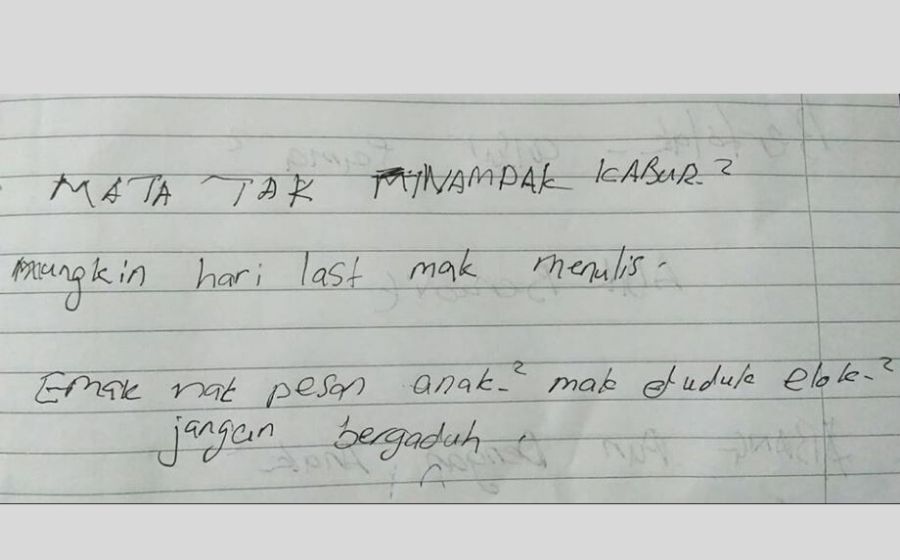 MATA TAK NAMPAK KABUR ²
mungkin hari last mak menulis.
Emak nak pesan anak-² mak duduk elok-²
jangan bergaduh.